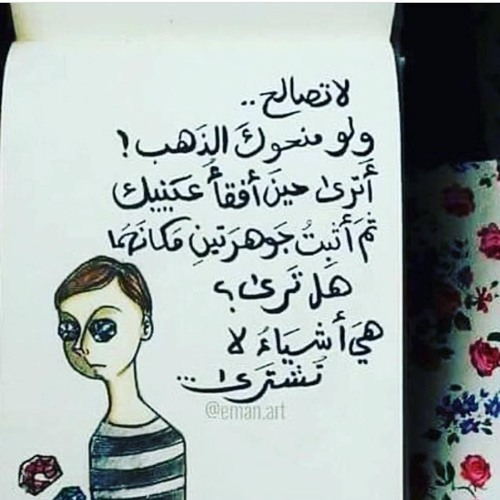 لا تصالح..
ولو منحوكَ الذهب!
أَترىٰ حينَ أفقأُ عَينيك
ثمَ أثبتُ جَوهَرتينِ مَكانَهُما
هَل تَرىٰ؟
هيَ أشيَاءُ لا
تُشترىٰ...
@eman.art